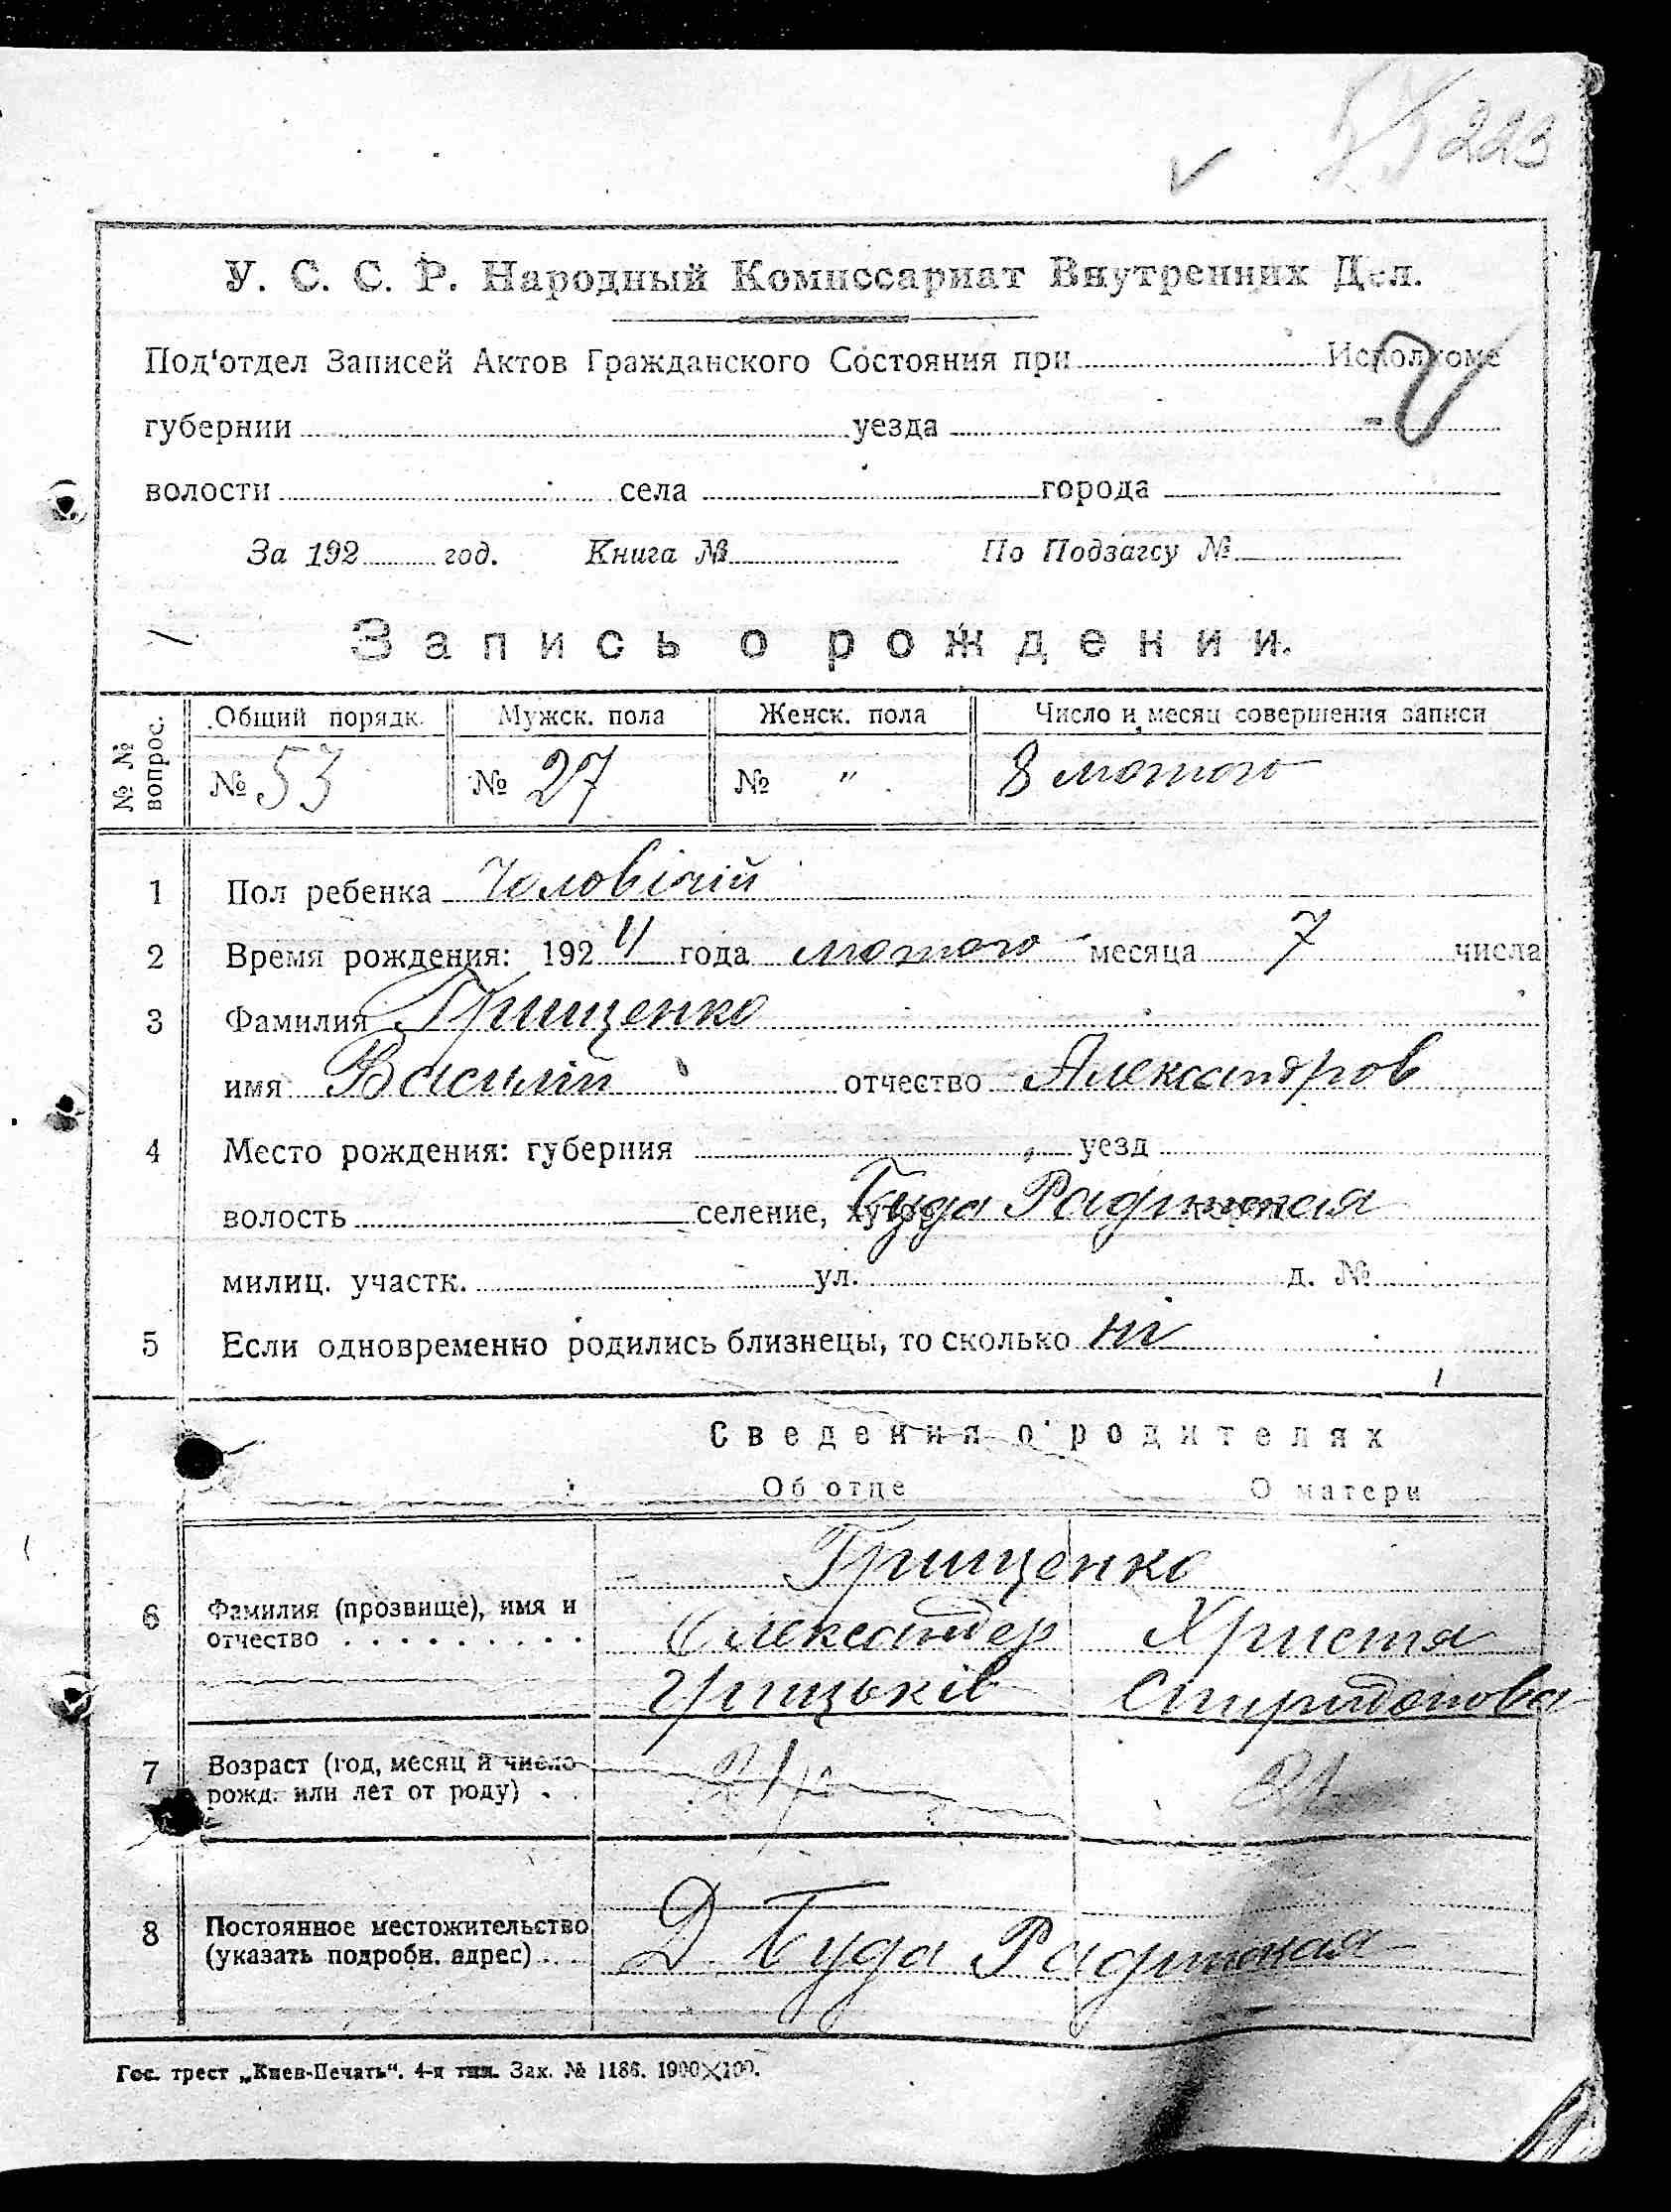 223
У. С. С. Р. Народный Комиссариат Внутренних Дел.
Под'отдел Записей Актов Гражданского Состояния при Исполкоме
губернии уезда
волости села города
За 192 год. Книга № По Подзагсу №
Запись о рождении.
№ № вопрос. Общий порядк. Мужск. пола Женск. пола Число и месяц совершения записи
№ 53 № 27 № " 8 лютого
1 Пол ребенка Чоловічій
2 Время рождения: 1924 года лютого месяца 7 числа
3 Фамилия Грищенко
имя Василій отчество Александров
4 Место рождения: губерния уезд
волость селение, Буда
милиц. участк. ул. д. №
5 Если одновременно родились близнецы, то сколько ні
Сведения о родителях
Об отце О матери
Грищенко
6 Фамилия (прозвище), имя и отчество Олександер Христя
Грицьків Спиридонова
7 Возраст (год, месяц и число рожд. или лет от роду) 21
8 Постоянное местожительство (указать подробн. адрес) Д Буда
Гос. трест „Киев-Печать“. 4-я тип. Зак. № 1186. 1900×100.